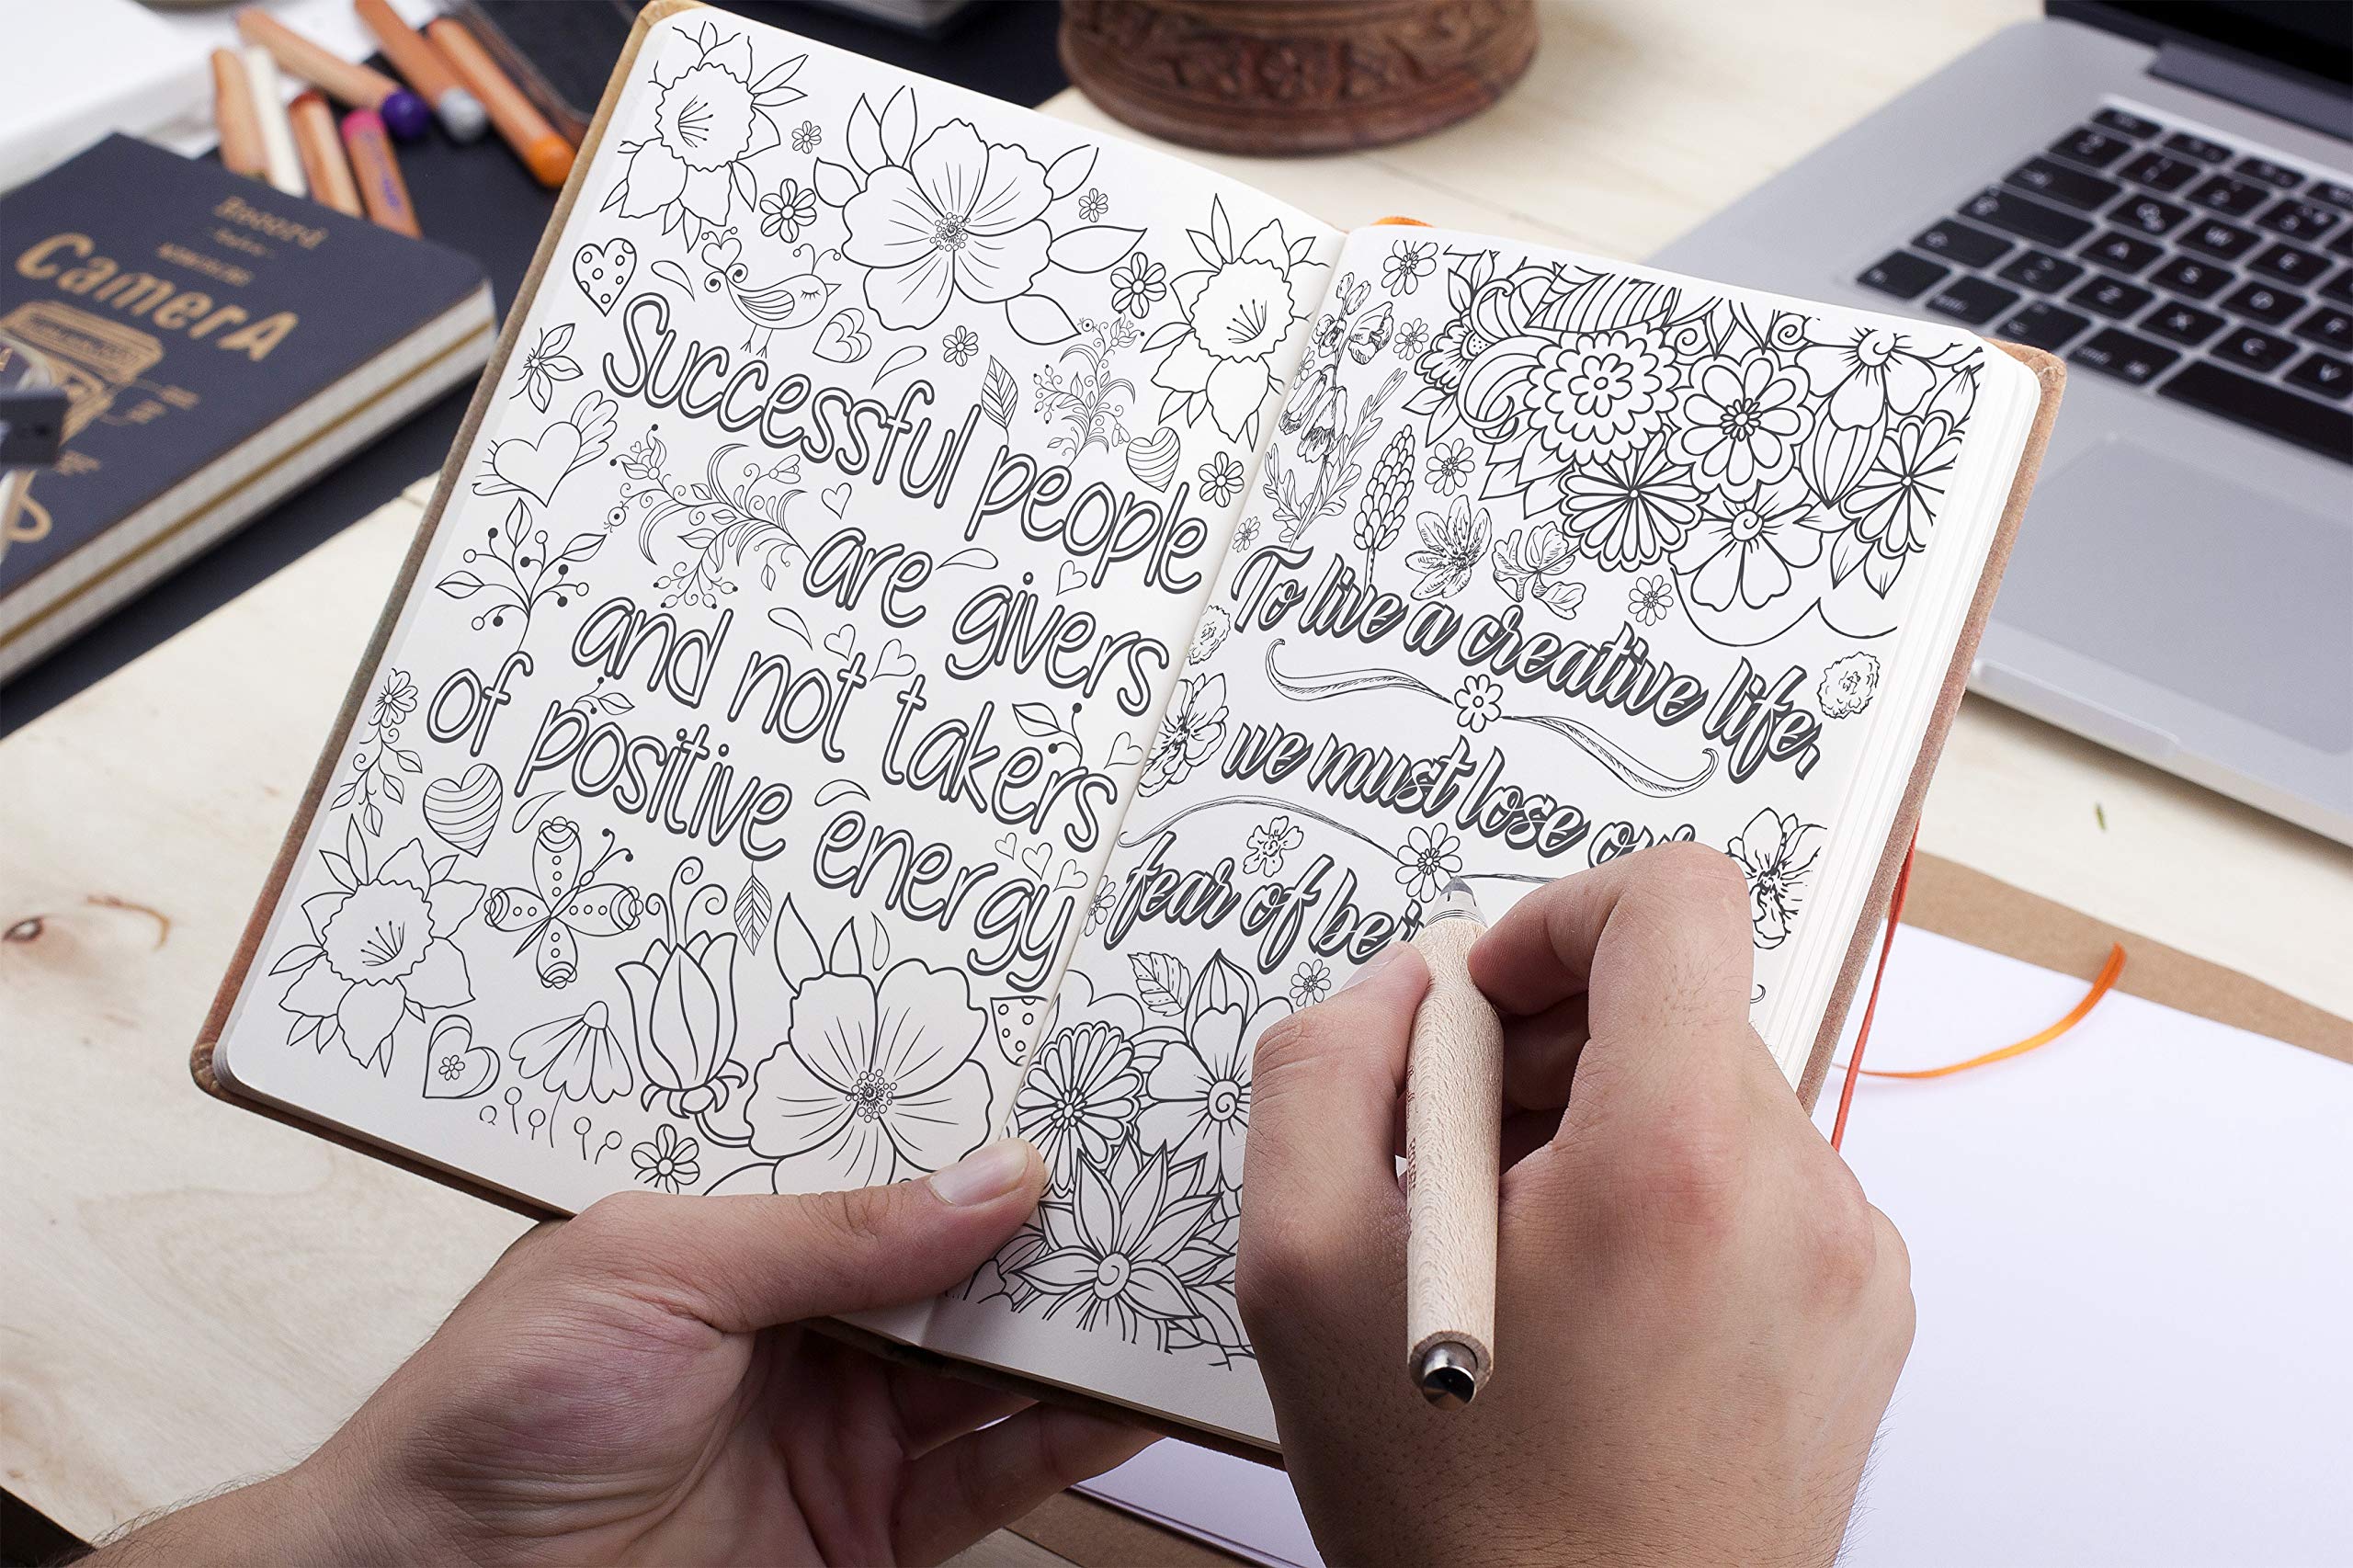 Record
CamerA
Successful people
are givers
and not takers
of positive energy
To live a creative life,
we must lose our
fear of bei